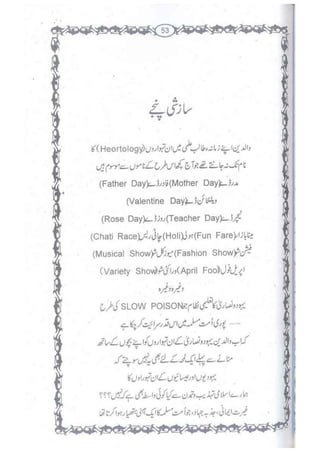 53
سازشی پنجے
والدین اپنے زمانہ طالب علمی میں ان تہواروں (Heortology) کا
نام تک نہ جانتے تھے جو آج کچھ اس طرح کے ناموں سے موسوم ہیں
مدر ڈے (Mother Day) فادر ڈے (Father Day)
ویلنٹائن ڈے (Valentine Day)
ٹیچر ڈے (Teacher Day) روز ڈے (Rose Day)
مینا بازار (Fun Fare) ہولی (Holi) چاٹی ریس (Chati Race)
فیشن شو (Fashion Show) میوزیکل شو (Musical Show)
اپریل فول (April Fool) ورائٹی شو (Variety Show)
وغیرہ وغیرہ
یہود و نصاریٰ کا تعلیمی نظام جو SLOW POISON کی طرح
---- پوری اُمت مسلمہ میں اس قدر سرائیت کر چکا ہے
کہ اب والدین یہود و نصاریٰ کے ان تہواروں کو اپنے بچوں کے ساتھ
منانے سے پہلے ایک لمحہ کے لئے بھی یہ نہیں سوچتے کہ
یہودیوں اور عیسائیوں کے ان تہواروں کا
ہمارے اسلامی تہذیب و تمدن سے کیا کوئی واسطہ بھی ہے کہ نہیں؟؟؟
غیرت ایمانی، جذبہ جہاد، جو اُمت مسلمہ کا ایک ہی ہتھیار ہوا کرتا تھا